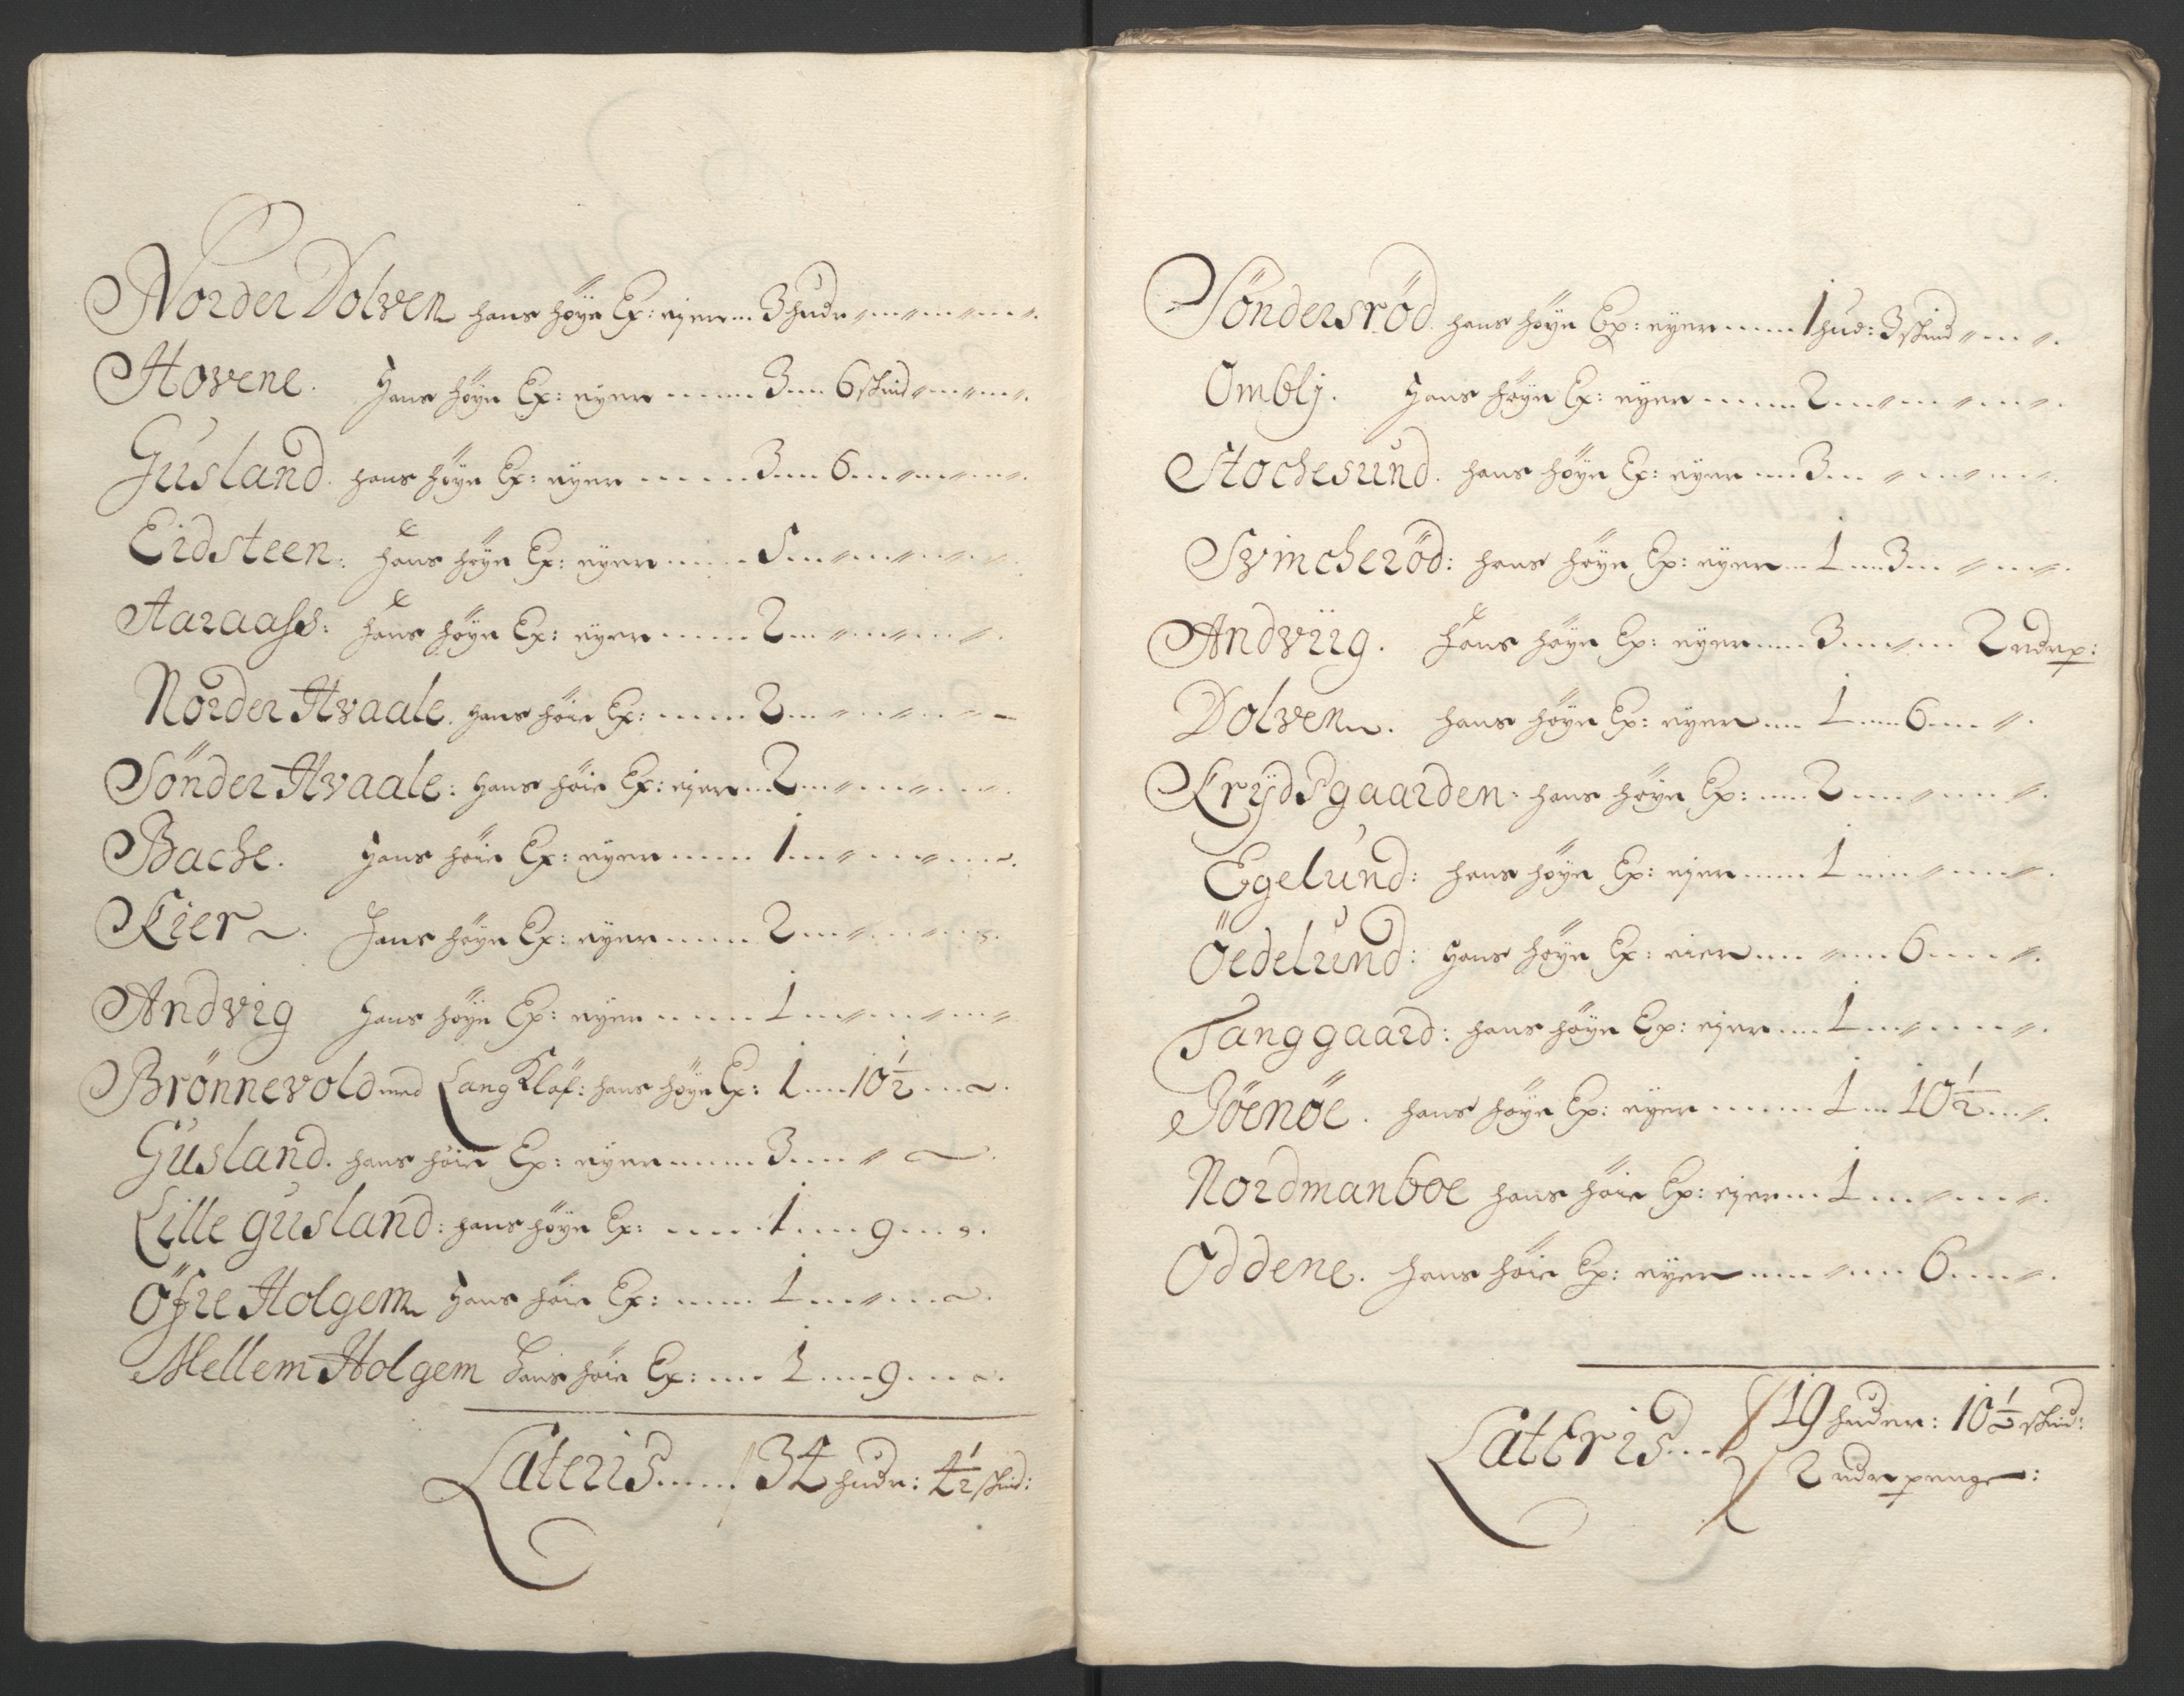 Norder Dolven hans höye Ex: ejer ... 3 hude „ ... „ ... „
Hovene. Hans höye Ex: eyer ...... 3 ... 6 skind „ ... „
Gusland. hans höye Ex: eyer ...... 3 ... 6 ... „ ... „
Eidsteen: Hans höye Ex: eyer ...... 5 ... „ ... „ ... „
Aaraass: Hans höye Ex: eyer ...... 2 ... „ ... „ ... „
Norder Hvaale. Hans höie Ex: ...... 2 ... „ ... „ ... –
Sönder Hvaale: Hans höie Ex: ejer ... 2 ... „ ... „ ... „
Bache. Hans höie Ex: eyer ...... 1 ... „ ... „ ...
Kier. Hans höye Ex: eyer ...... 2 ... „ ... „ ...
Andvig Hans höye Ex: eyer ...... 1 ... „ ... „ ... „
Brönnevold med Lang Klöf: hans höye Ex: 1 ... 10 1/2 ...
Gusland. hans höie Ex: eyer ...... 3 ... „
Lille gusland: hans höye Ex: ...... 1 ... 9 ...
Öfre Holgem Hans höie Ex: ...... 1 ... „ ...
Mellem Holgem Hans höie Ex: ... 1 ... 9 ...
Lateris ...... 34 hude: 4 1/2 skind:
Söndersröd. hans höye Ex: eyer ...... 1 hud: 3 skind „ ... „
Ombly. Hans höye Ex: eyer ...... 2 ... „ ... „ ... „
Stochesund. hans höye Ex: eyer ... 3 ... „ ... „ ... „
Svincheröd: hans höye Ex: eyer ... 1 ... 3 ... „ ... „
Andviig. Hans höye Ex: eyer ... 3 ... „ ... 2 ndrp:
Dolven. hans höye Ex: eyer ... 1 ... 6 ... „
Krydsgaarden: hans höye Ex: ... 2 ... „ ... „
Egelund: hans höye Ex: ejer ...... 1 ... „ ... „
Öedelund: Hans höye Ex: eier ... „ ... 6 ... „
Tanggaard: hans höye Ex: ejer ... 1 ... „ ... „
Jöenöe. hans höye Ex: eyer ...... 1 ... 10 1/2 ... „
Nordmanboe hans höie Ex: ejer ... 1 ... „ ... „
Oddene. hans höie Ex: eyer ...... „ ... 6 ... „
Lateris ... 19 huder: 10 1/2 skind:
2 ndrpenge: